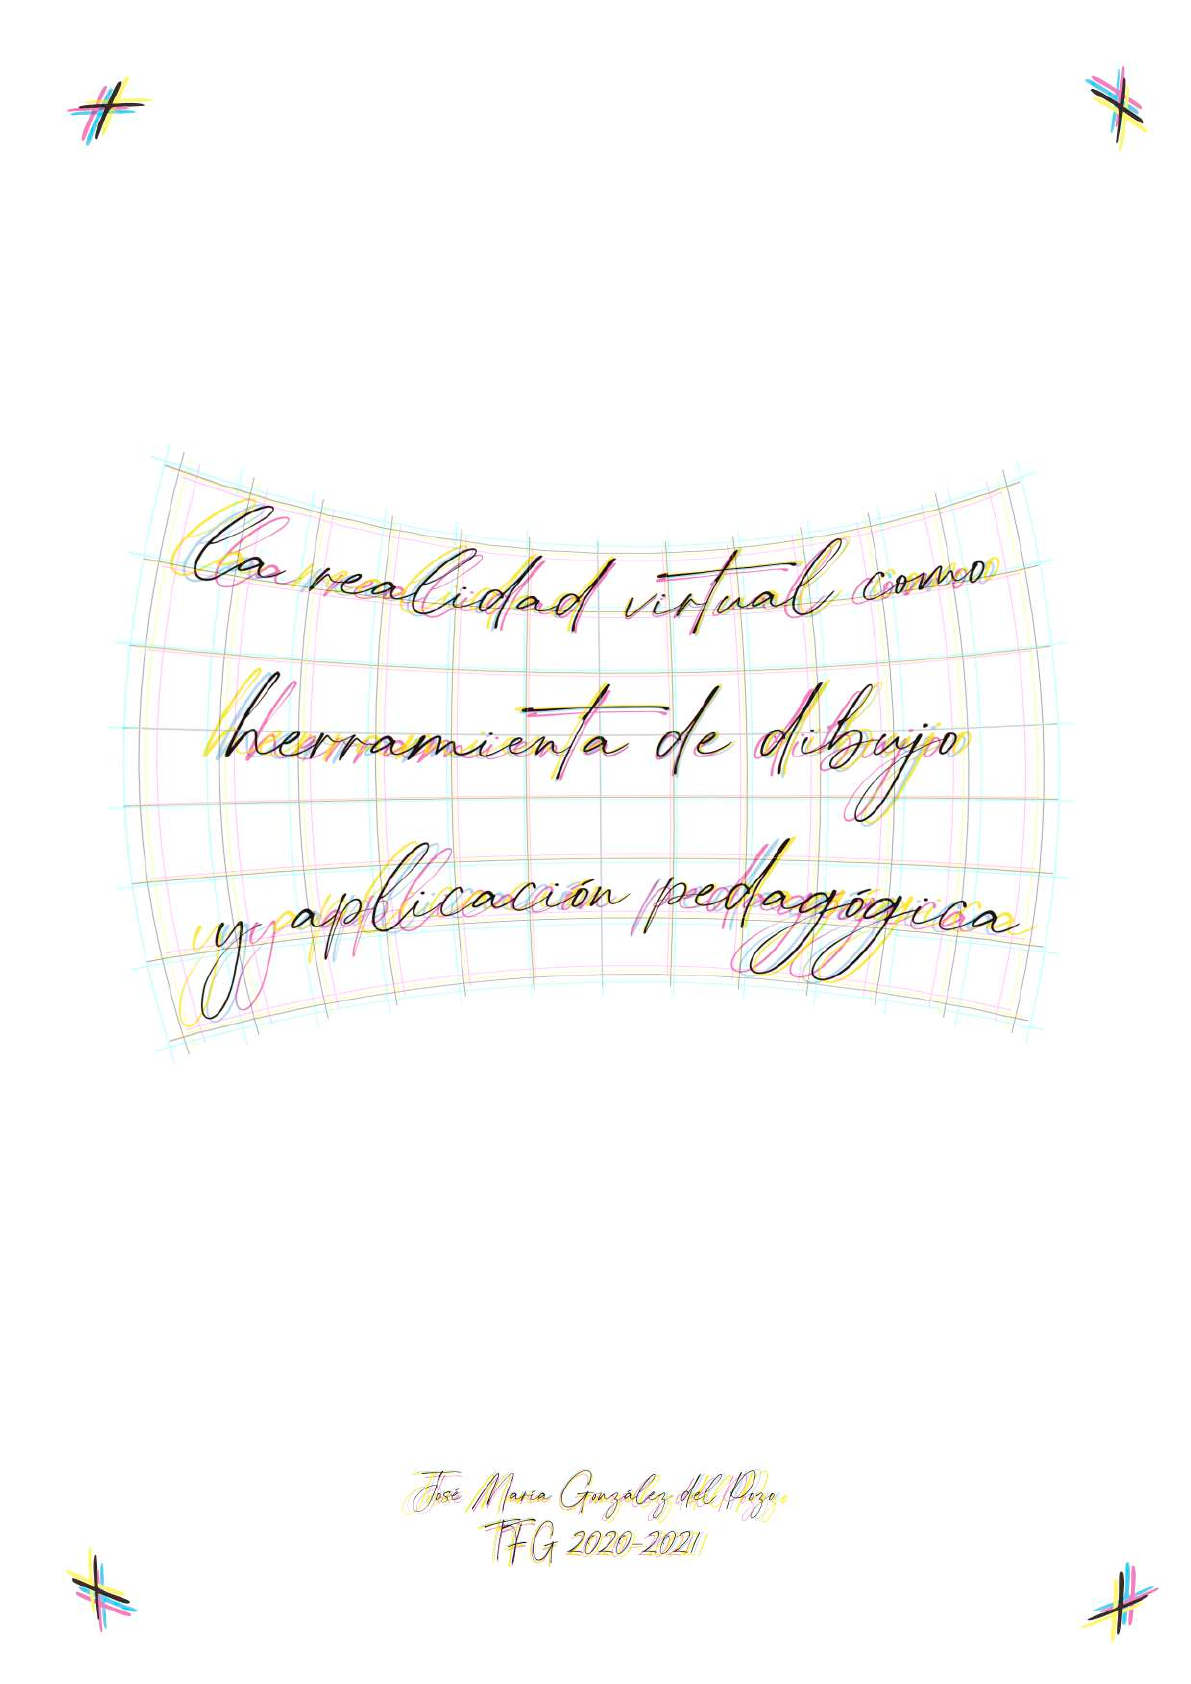 la realidad virtual como
herramienta de dibujo
y aplicación pedagógica
José María González del Pozo
TFG 2020-2021